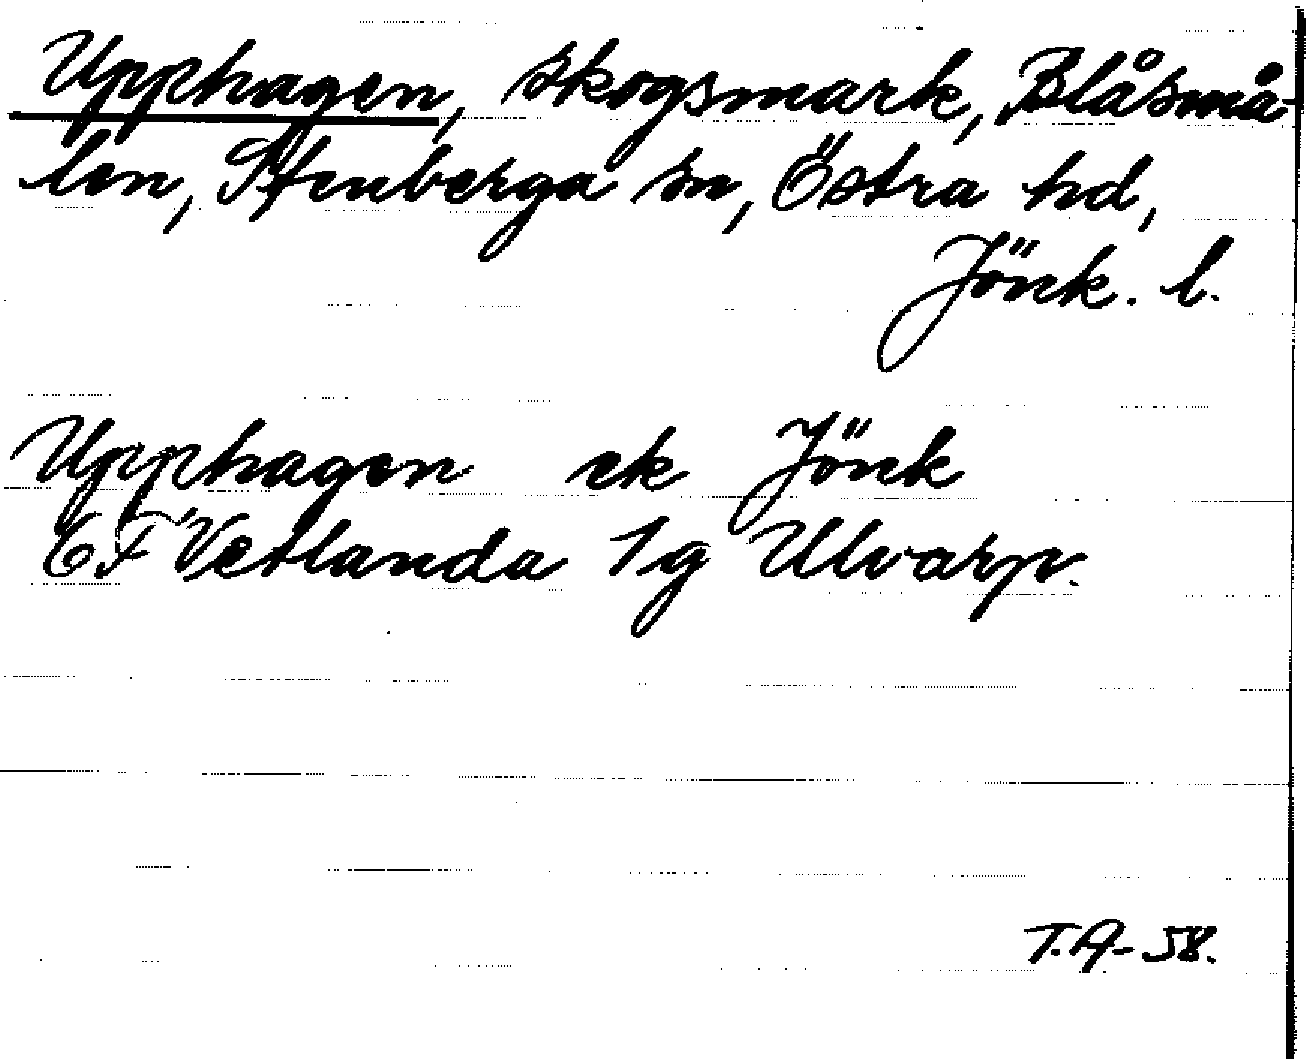 Upphagen, skogsmark, Blåsmå-
len, Stenberga sn, Östra hd,
Jönk. l.
Upphagen ek Jönk
6F Vetlanda 1g Ulvarp.
T.A-58.